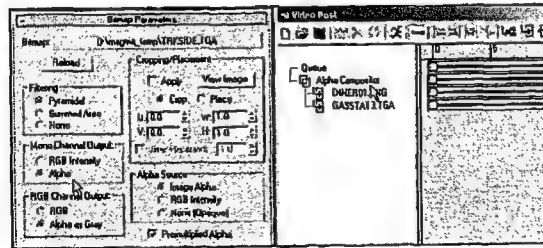 Bitmap Parameters
Bitmap:
Reload
Cropping/Placement
Apply
View Image
Crop
Place
U: 0.0
W: 1.0
V: 0.0
H: 1.0
Filtering
Pyramidal
Summed Area
None
Mono Channel Output:
RGB Intensity
Alpha
RGB Channel Output:
RGB
Alpha as Gray
Alpha Source
Image Alpha
RGB Intensity
None (Opaque)
Premultiplied Alpha
Video Post
Queue
Alpha Compositor